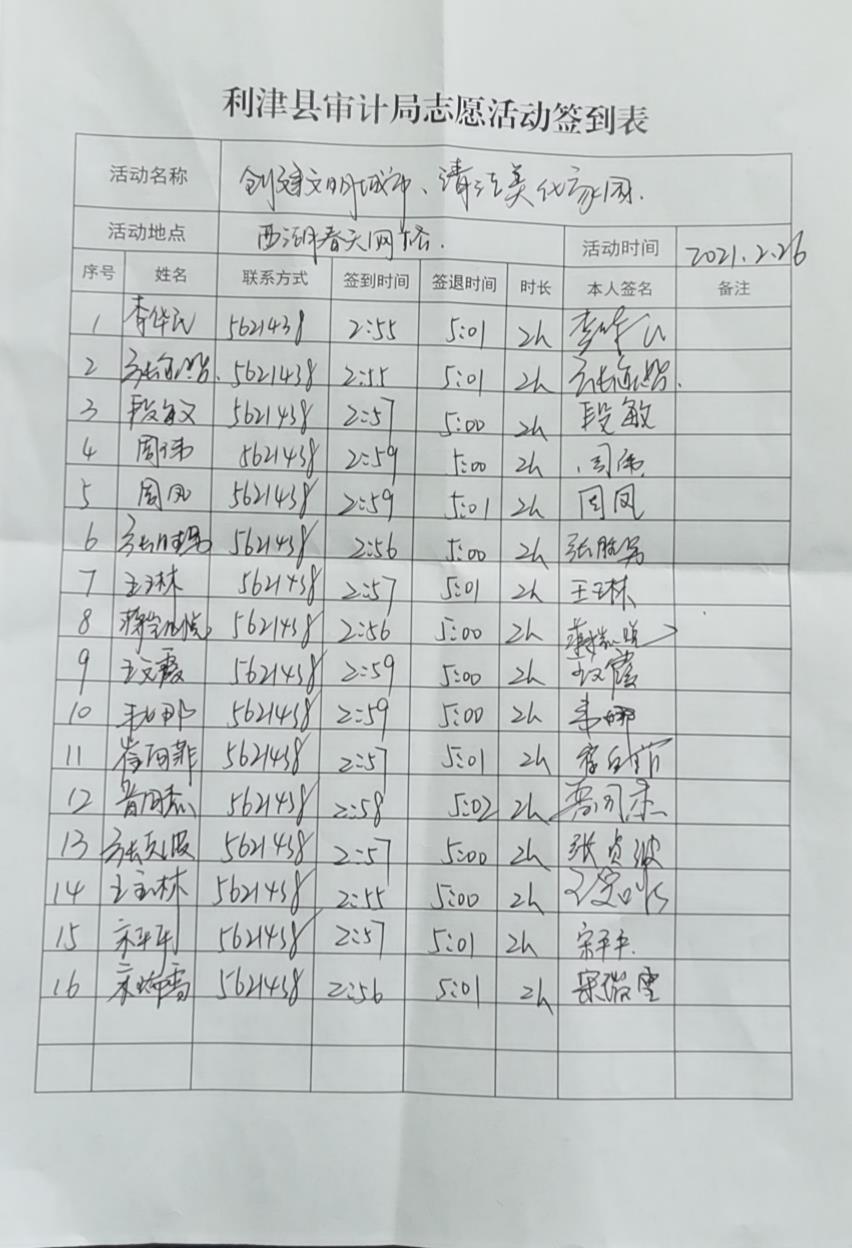 利津县审计局志愿活动签到表
活动名称 创建文明城市、清洁美化家园.
活动地点 西湖春天网格. 活动时间 2021.2.26
序号 姓名 联系方式 签到时间 签退时间 时长 本人签名 备注
1 李华民 5621438 2:55 5:01 2h 李华民
2 5621438 2:55 5:01 2h
3 段敏 5621438 2:57 5:00 2h 段敏
4 周伟 5621438 2:59 5:00 2h 周伟
5 周凤 5621438 2:59 5:01 2h 周凤
6 5621438 2:56 5:00 2h
7 王玉林 5621438 2:57 5:01 2h 王玉林
8 5621438 2:56 5:00 2h
9 王文霞 5621438 2:59 5:00 2h 王文霞
10 5621438 2:59 5:00 2h
11 5621438 2:57 5:01 2h
12 5621438 2:58 5:02 2h
13 张贞波 5621438 2:57 5:00 2h 张贞波
14 5621438 2:55 5:00 2h
15 宋平平 5621438 2:57 5:01 2h 宋平平
16 5621438 2:56 5:01 2h